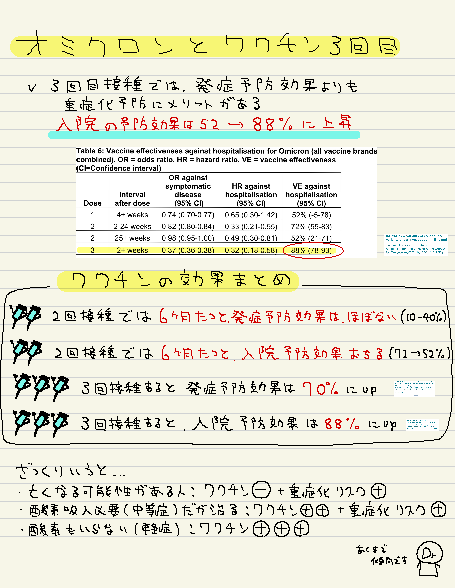 オミクロンとワクチン3回目
✓ 3回目接種では、発症予防効果よりも
重症化予防にメリットがある
入院の予防効果は52→88%に上昇
Table 6: Vaccine effectiveness against hospitalisation for Omicron (all vaccine brands
combined). OR = odds ratio. HR = hazard ratio. VE = vaccine effectiveness
(CI=Confidence interval)
Dose Interval after dose OR against symptomatic disease (95% CI) HR against hospitalisation (95% CI) VE against hospitalisation (95% CI)
1 4+ weeks 0.74 (0.70-0.77) 0.65 (0.30-1.42) 52% (-5-78)
2 2-24 weeks 0.82 (0.80-0.84) 0.33 (0.21-0.55) 72% (55-83)
2 25+ weeks 0.98 (0.95-1.00) 0.49 (0.30-0.81) 52% (21-71)
3 2+ weeks 0.37 (0.36-0.38) 0.32 (0.18-0.58) 88% (78-93)
ワクチンの効果まとめ
2回接種では 6ヶ月たつと、発症予防効果は、ほぼない (10-40%)
2回接種では 6ヶ月たつと、入院予防効果おちる (72→52%)
3回接種すると 発症予防効果は 70% に up
3回接種すると、入院予防効果は 88% に up
ざっくりいうと…
・亡くなる可能性がある人：ワクチン⊖ +重症化リスク⊕
・酸素吸入必要(中等症)だが治る：ワクチン⊕⊕ +重症化リスク⊕
・酸素もいらない(軽症)：ワクチン⊕⊕⊕
あくまで
傾向です
Dr